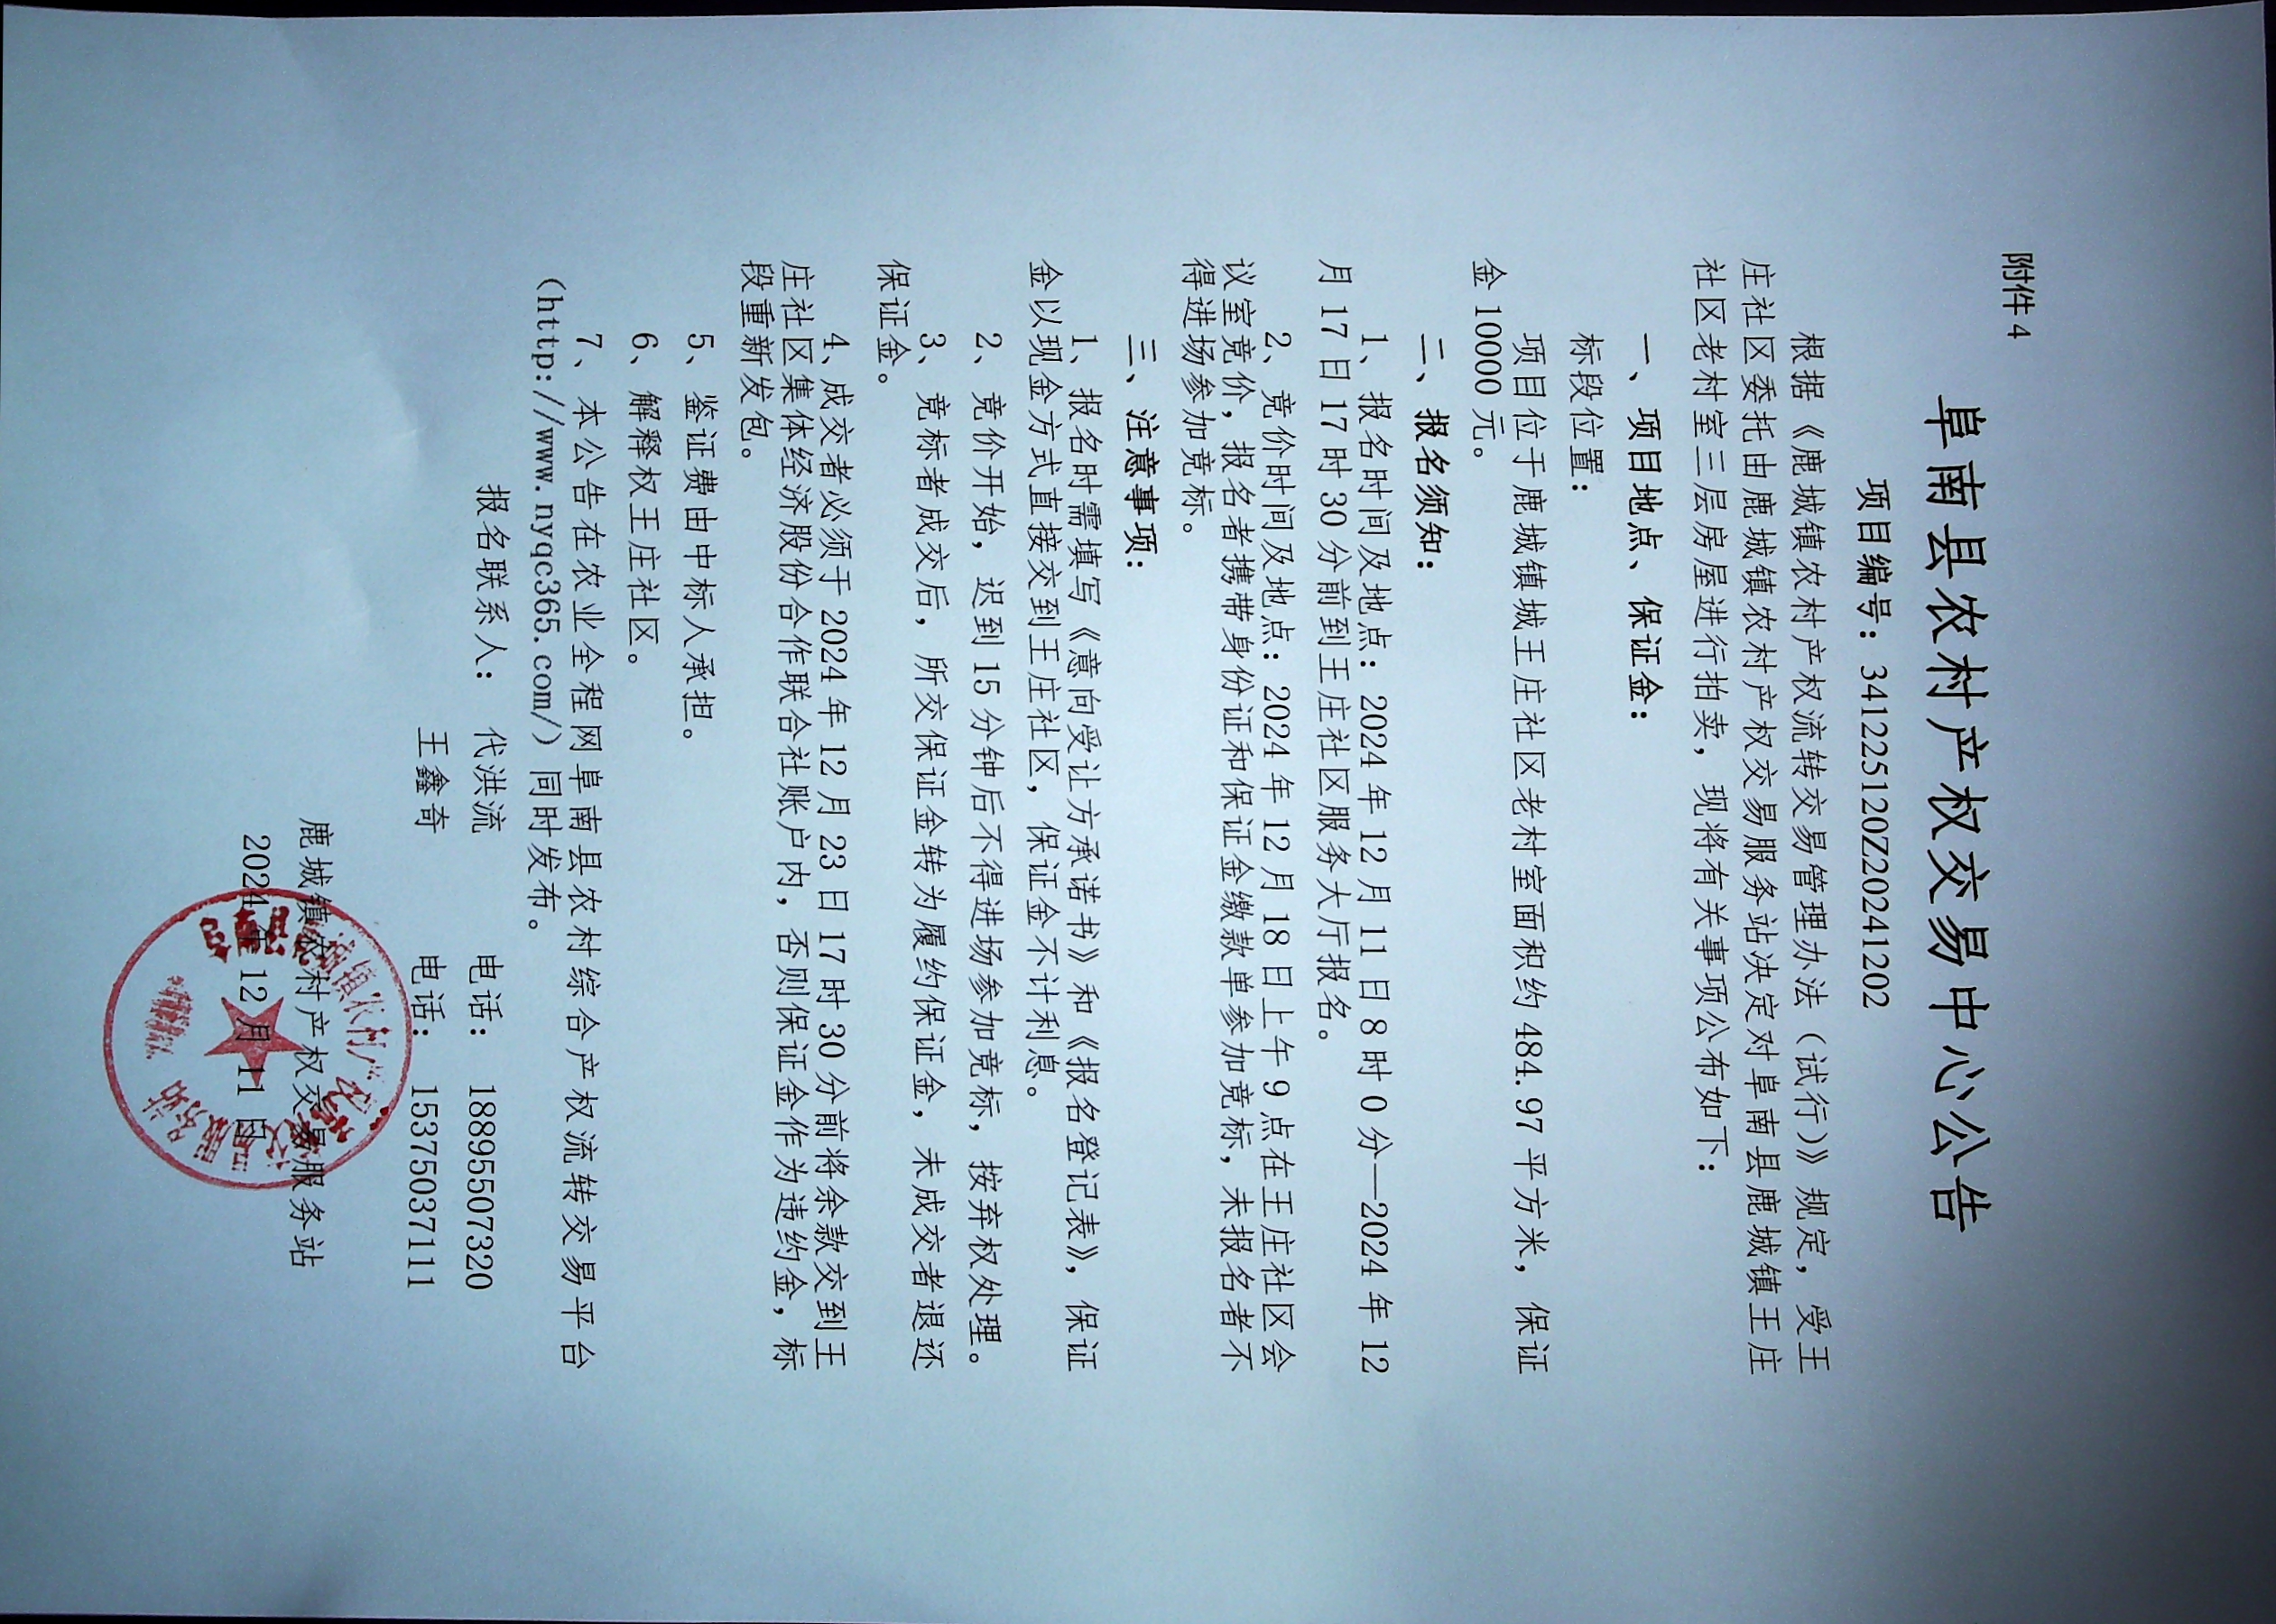 附件 4
阜南县农村产权交易中心公告
项目编号：341225120Z20241202
根据《鹿城镇农村产权流转交易管理办法（试行）》规定，受王
庄社区委托由鹿城镇农村产权交易服务站决定对阜南县鹿城镇王庄
社区老村室三层房屋进行拍卖，现将有关事项公布如下：
一、项目地点、保证金：
标段位置：
项目位于鹿城镇城王庄社区老村室面积约 484.97 平方米，保证
金 10000 元。
二、报名须知：
1、报名时间及地点：2024 年 12 月 11 日 8 时 0 分—2024 年 12
月 17 日 17 时 30 分前到王庄社区服务大厅报名。
2、竞价时间及地点：2024 年 12 月 18 日上午 9 点在王庄社区会
议室竞价，报名者携带身份证和保证金缴款单参加竞标，未报名者不
得进场参加竞标。
三、注意事项：
1、报名时需填写《意向受让方承诺书》和《报名登记表》，保证
金以现金方式直接交到王庄社区，保证金不计利息。
2、竞价开始，迟到 15 分钟后不得进场参加竞标，按弃权处理。
3、竞标者成交后，所交保证金转为履约保证金，未成交者退还
保证金。
4、成交者必须于 2024 年 12 月 23 日 17 时 30 分前将余款交到王
庄社区集体经济股份合作联合社账户内，否则保证金作为违约金，标
段重新发包。
5、鉴证费由中标人承担。
6、解释权王庄社区。
7、本公告在农业全程网阜南县农村综合产权流转交易平台
（http://www.nyqc365.com/）同时发布。
报名联系人： 代洪流 电话： 18895507320
王鑫奇 电话： 15375037111
鹿城镇农村产权交易服务站
2024 年 12 月 11 日